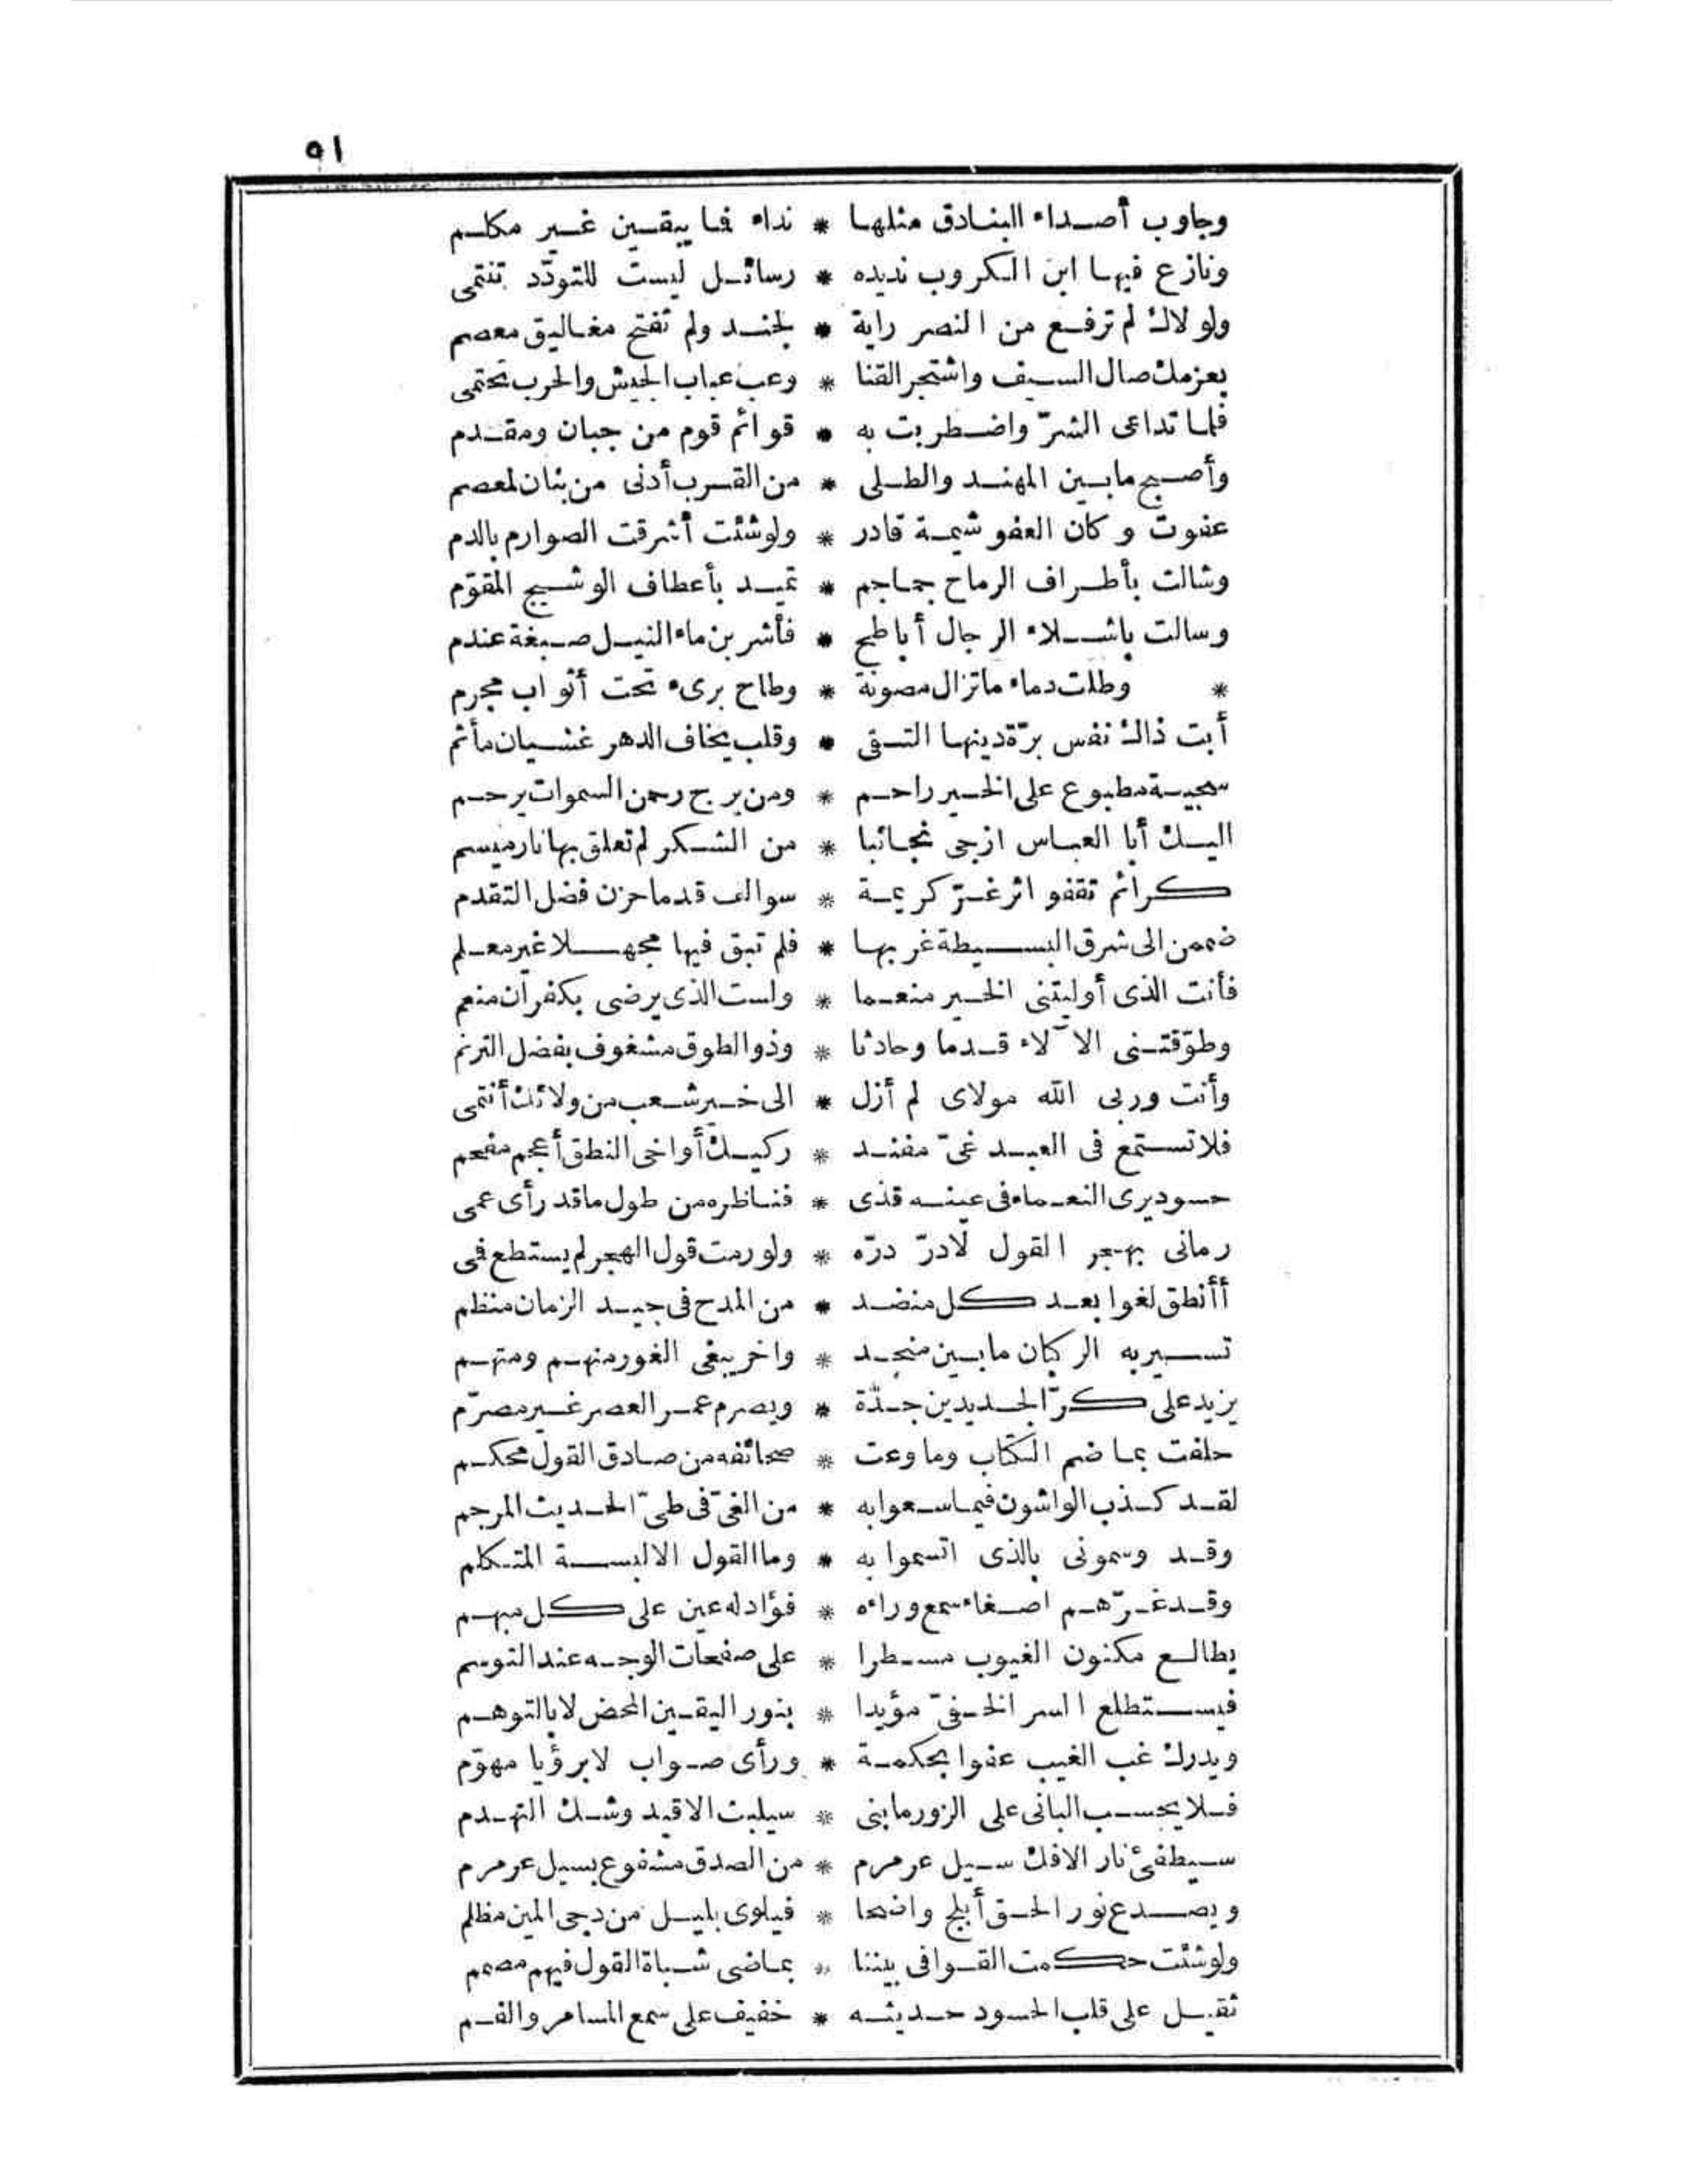 ٥١
وجاوب أصداء البنادق مثلها * نداء فما يبقين غير مكلم
ونازع فيها ابن الكروب نديده * رسائل ليست للتودّد تنتمى
ولولاك لم ترفع من النصر راية * لجند ولم تفتح مغاليق معصم
بعزمك صال السيف واشتجر القنا * وعب عباب الجيش والحرب تحتمى
فلما تداعى الشرّ واضطربت به * قوائم قوم من جبان ومقدم
وأصبح ما بين المهند والطلى * من القرب أدنى من بنان لمعصم
عفوت وكان العفو شيمة قادر * ولو شئت أشرقت الصوارم بالدم
وشالت بأطراف الرماح جماجم * تميد بأعطاف الوشيج المقوّم
وسالت باشلاء الرجال أباطح * فأشربن ماء النيل صبغة عندم
* وطلت دماء ماتزال مصونة * وطاح برىء تحت أثواب مجرم
أبت ذاك نفس برّة دينها التقى * وقلب يخاف الدهر غشيان مأثم
سجية مطبوع على الخير راحم * ومن يرج رحمن السموات يرحم
اليك أبا العباس ازجى نجائبا * من الشكر لم تعلق بها نار ميسم
كرائم تقفو اثر غرّ كريمة * سوالف قدما حزن فضل التقدم
ضممن الى شرق البسيطة غربها * فلم تبق فيها مجهلا غير معلم
فأنت الذى أوليتنى الخير منعما * ولست الذى يرضى بكفران منعم
وطوّقتنى الآلاء قدما وحادثا * وذو الطوق مشغوف بفضل الترنم
وأنت وربى الله مولاى لم أزل * الى خير شعب من ولائك أنتمى
فلا تستمع فى العبد غىّ مفند * ركيك أواخى النطق أعجم مفحم
حسود يرى النعماء فى عينه قذى * فناظره من طول ماقد رأى عمى
رمانى بهجر القول لادرّ درّه * ولو رمت قول الهجر لم يستطع فمى
أأنطق لغوا بعد كل منضد * من المدح فى جيد الزمان منظم
تسير به الركبان ما بين منجد * واخر يبغى الغور منهم ومتهم
يزيد على كرّ الجديدين جدّة * ويصرم عمر العصر غير مصرّم
حلفت بما ضم الكتاب وما وعت * صحائفه من صادق القول محكم
لقد كذب الواشون فيما سعوا به * من الغىّ فى طىّ الحديث المرجم
وقد وسمونى بالذى اتسموا به * وما القول الا لبسة المتكلم
وقد غرّهم اصغاء سمع وراءه * فؤاد له عين على كل مبهم
يطالع مكنون الغيوب مسطرا * على صفحات الوجه عند التوسم
فيستطلع السر الخفىّ مؤيدا * بنور اليقين المحض لا بالتوهم
ويدرك غب الغيب عفوا بحكمة * ورأى صواب لابرؤيا مهوّم
فلا يحسب البانى على الزور ما بنى * سيلبث الا قيد وشك التهدم
سيطفئ نار الافك سيل عرمرم * من الصدق مشفوع بسيل عرمرم
ويصدع نور الحق أبلج واضحا * فيلوى بليل من دجى المين مظلم
ولو شئت حكمت القوافى بيننا * بماضى شباة القول فيهم مصمم
ثقيل على قلب الحسود حديثه * خفيف على سمع المسامر والفم